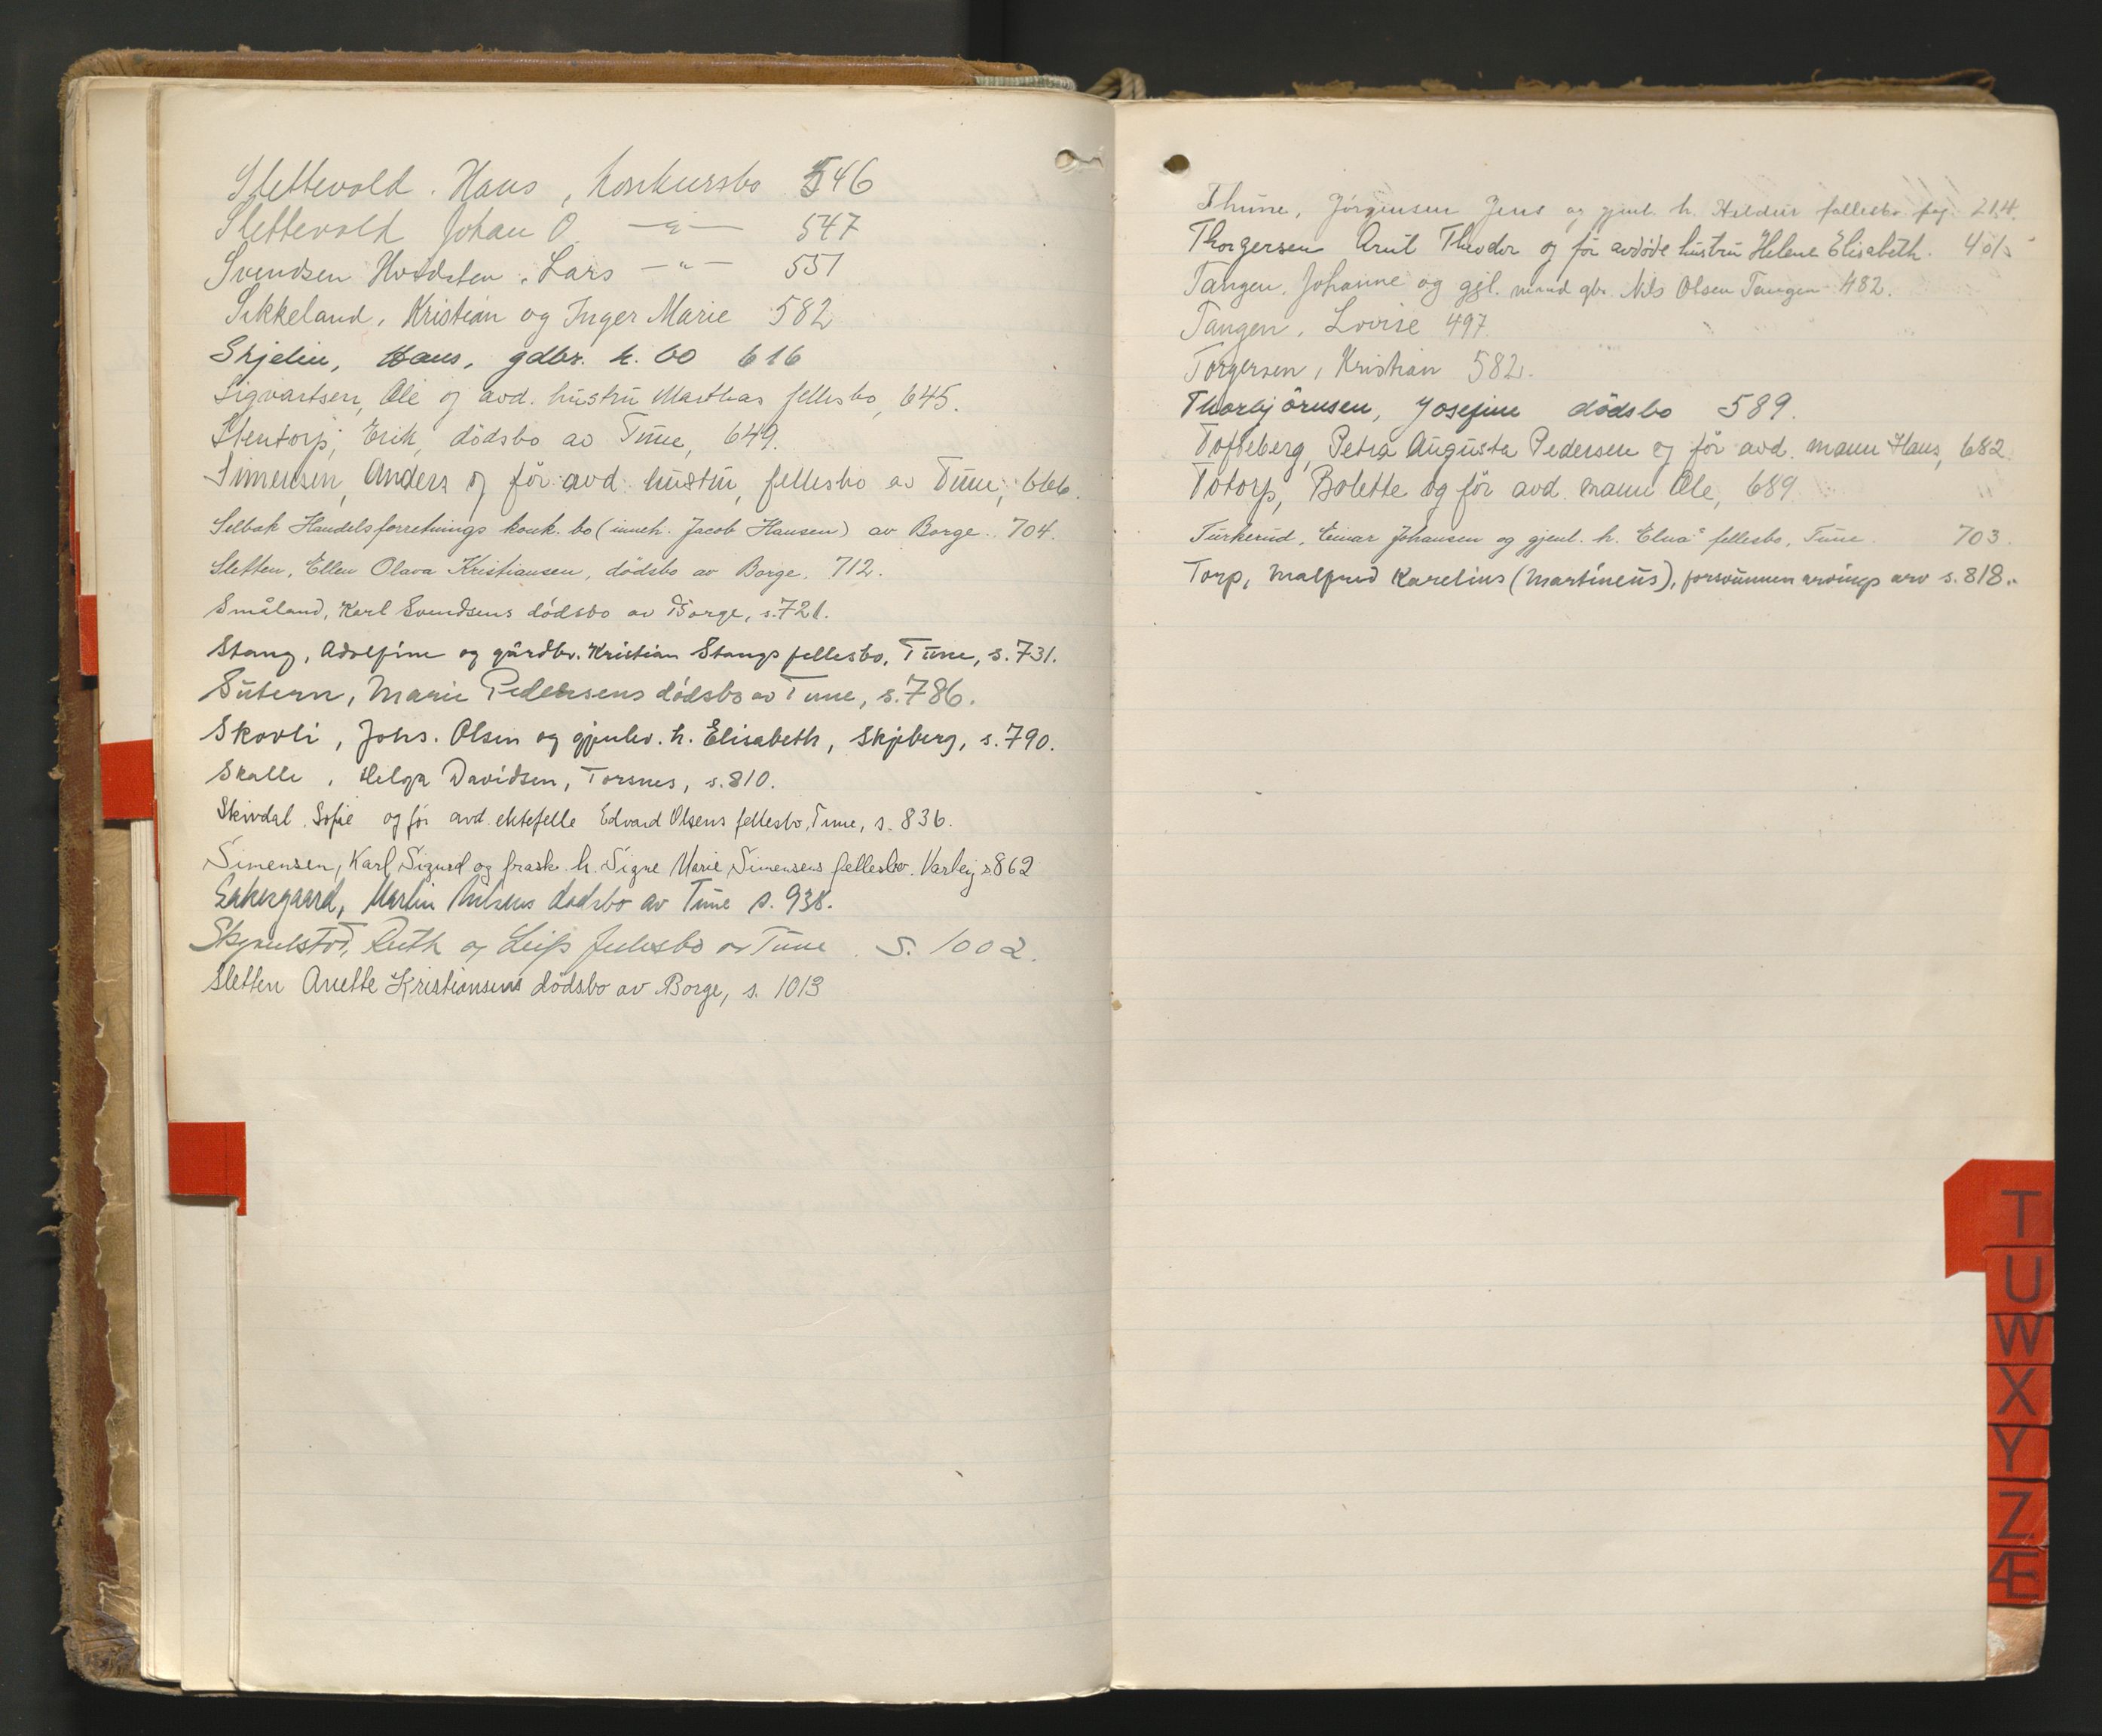 Slettevold. Hans, konkursbo 546
Slettevold Johan O. —"— 547
Svendsen Hvidsten, Lars —"— 551
Sikkeland, Kristian og Inger Marie 582
Skjelin, Hans, gdbr. k. bo 616
Sigvartsen, Ole og avd. hustru Marthas fellesbo, 645.
Stentorp, Erik, dödsbo av Tune, 649.
Simensen, Anders og för avd hustru, fellesbo av Tune, 666.
Selbak Handelsforretnings konk. bo (inneh. Jacob Hansen) av Borge. 704.
Sletten, Ellen Olava Kristiansen, dödsbo av Borge. 712.
Småland, Karl Svendsens dödsbo av Borge, s. 721.
Stang, Adolfine og gårdbr. Kristian Stangs fellesbo, Tune, s. 731.
Sutern, Marie Pedersens dödsbo av Tune, s. 786.
Skovli, Johs. Olsen og gjenlev. h. Elisabeth, Skjeberg, s. 790.
Skalle, Helga Davidsen, Torsnes, s. 810.
Skivdal, Sofie og för avd. ektefelle Edvard Olsens fellesbo, Tune, s. 836.
Simensen, Karl Sigurd og frask. h. Signe Marie Simensens fellesbo. Varteig s 862
Enkergaard, Martin Nilsens dødsbo av Tune s. 938.
Ruth og Leif fellesbo av Tune. S. 1002.
Sletten Anette Kristiansens dödsbo av Borge, s. 1013
Thune, Jörgensen Jens og gjenl. h. Hildur fellesbo pag. 214.
Thorgersen Arnt Theodor og för avdöde hustru Helene Elisabeth. 401
Tangen, Johanne og gjl. mand gbr. Nils Olsen Tangen 482.
Tangen, Lovise 497
Torgersen, Kristian 582.
Thorbjörnsen, Josefine dödsbo 589.
Tofteberg, Petra Augusta Pedersen og för avd. mann Hans, 682.
Totorp, Bolette og för avd. mann Ole, 689
Turkerud, Einar Johansen og gjenl. h. Elna's fellesbo, Tune. 703.
Torp, Malfred Karelius (Martineus), forsvunnen arvings arv s. 818.
T
U
W
X
Y
Z
Æ